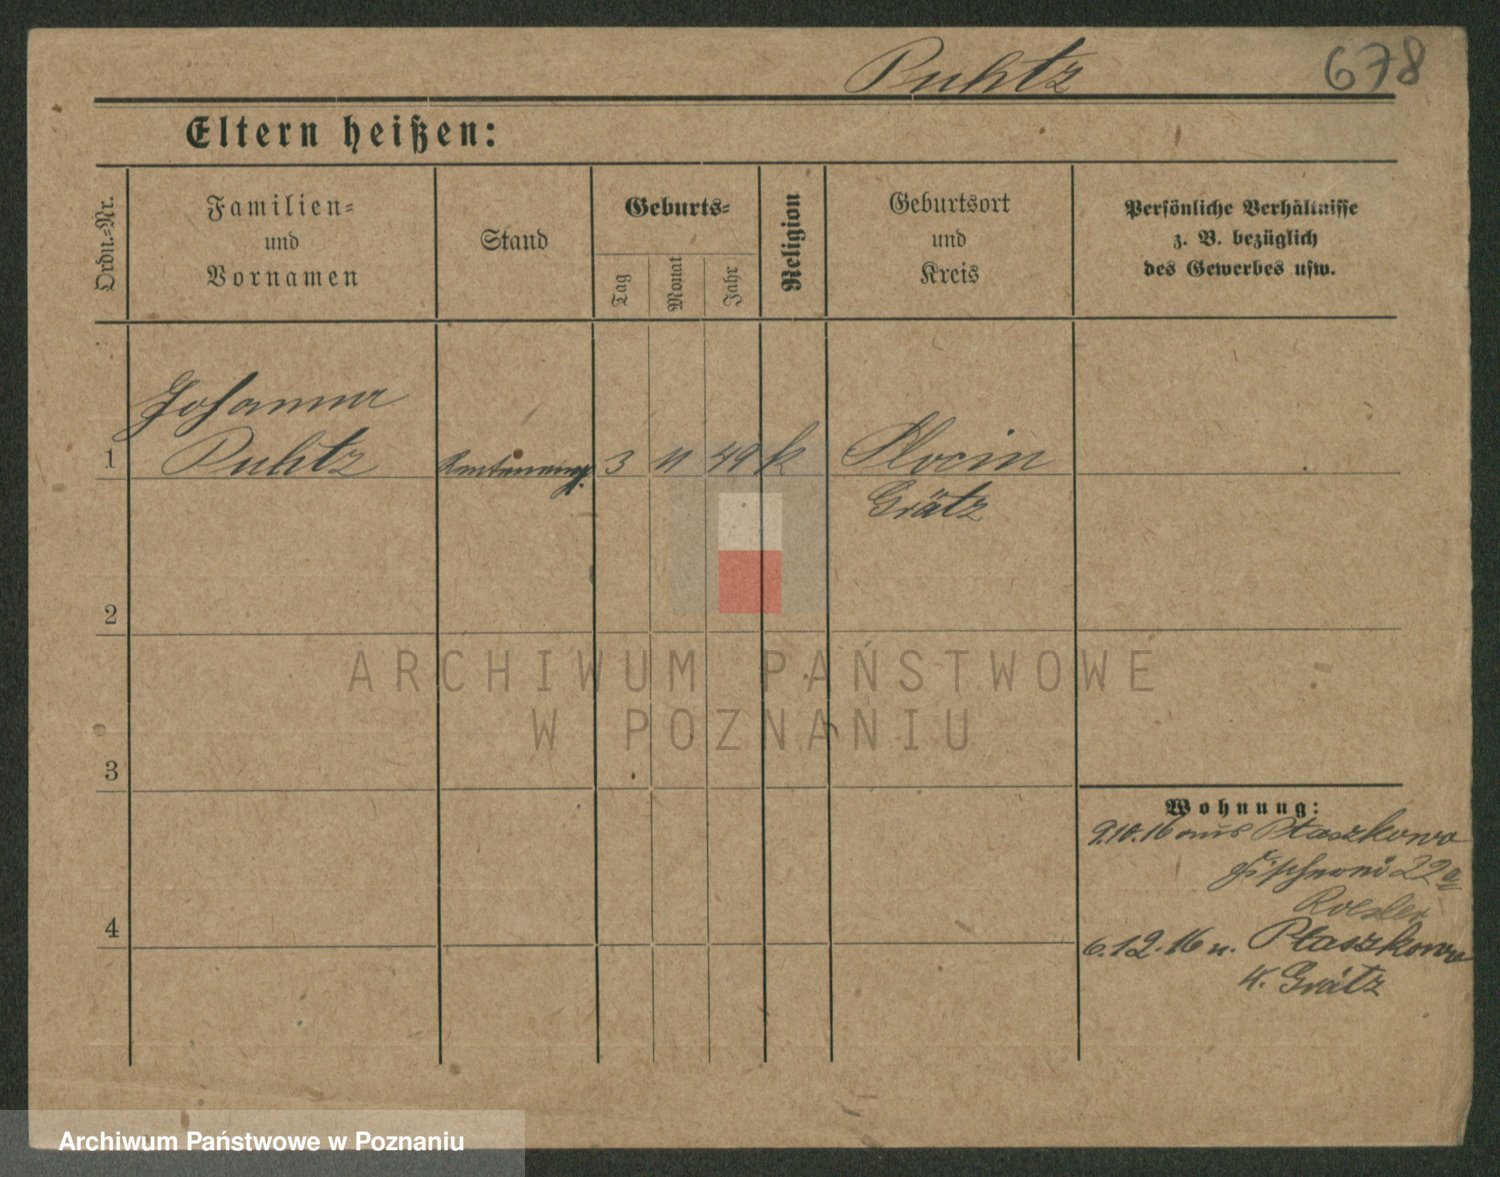 Puhtz
678
Eltern heißen:
Ordn.=Nr.
Familien=
und
Vornamen
Stand
Geburts=
Tag
Monat
Jahr
Religion
Geburtsort
und
Kreis
Persönliche Verhältnisse
z. B. bezüglich
des Gewerbes usw.
Johanna
1 Puhtz 3 11 49 k Slocin
Grätz
2
3
4
Wohnung:
9.10.16 aus Ptaszkowo
Fischerei 22a
Roesler
6.12.16 n. Ptaszkowo
K. Grätz
ARCHIWUM PAŃSTWOWE
W POZNANIU
Archiwum Państwowe w Poznaniu